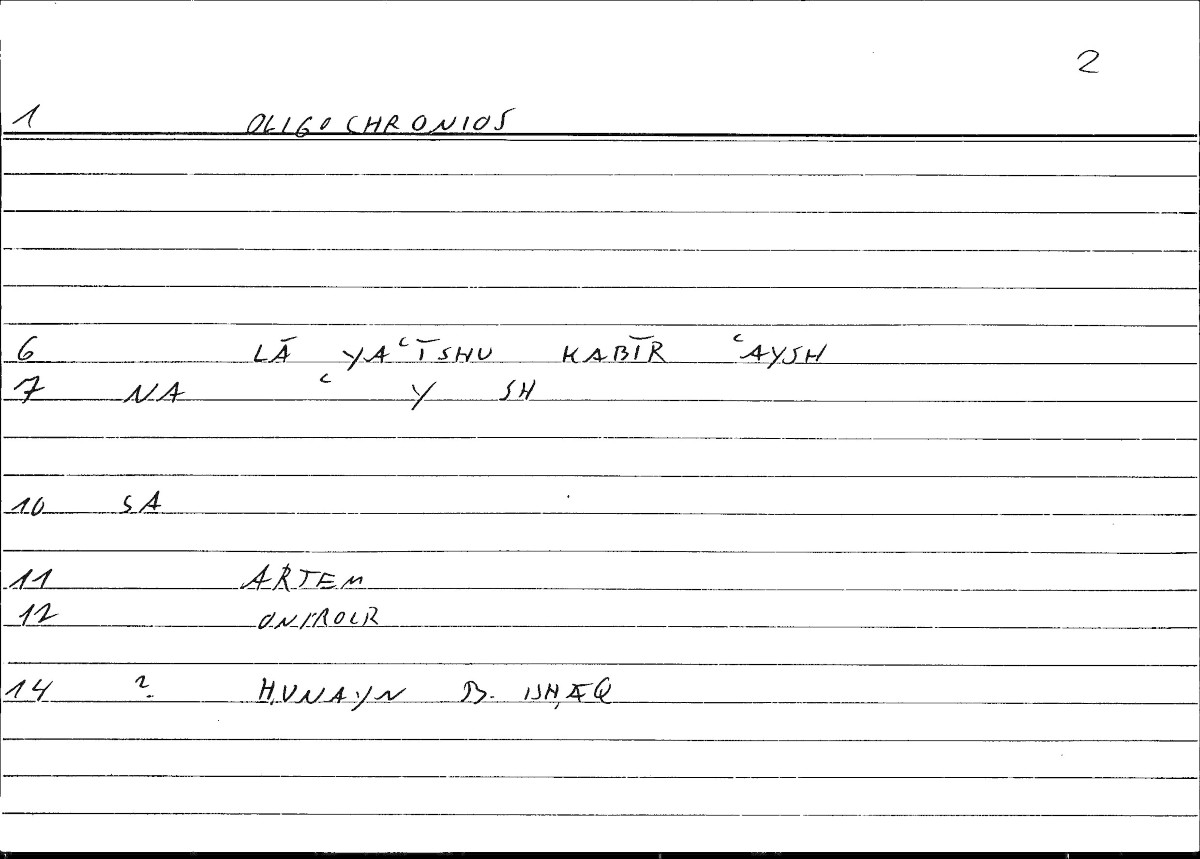 2
1 OLIGOCHRONIOS
6 LĀ YAʿĪSHU KABĪR ʿAYSH
7 NA ʿ Y SH
10 SA
11 ARTEM
12 ONIROCR
14 ? ḤUNAYN B. ISḤĀQ